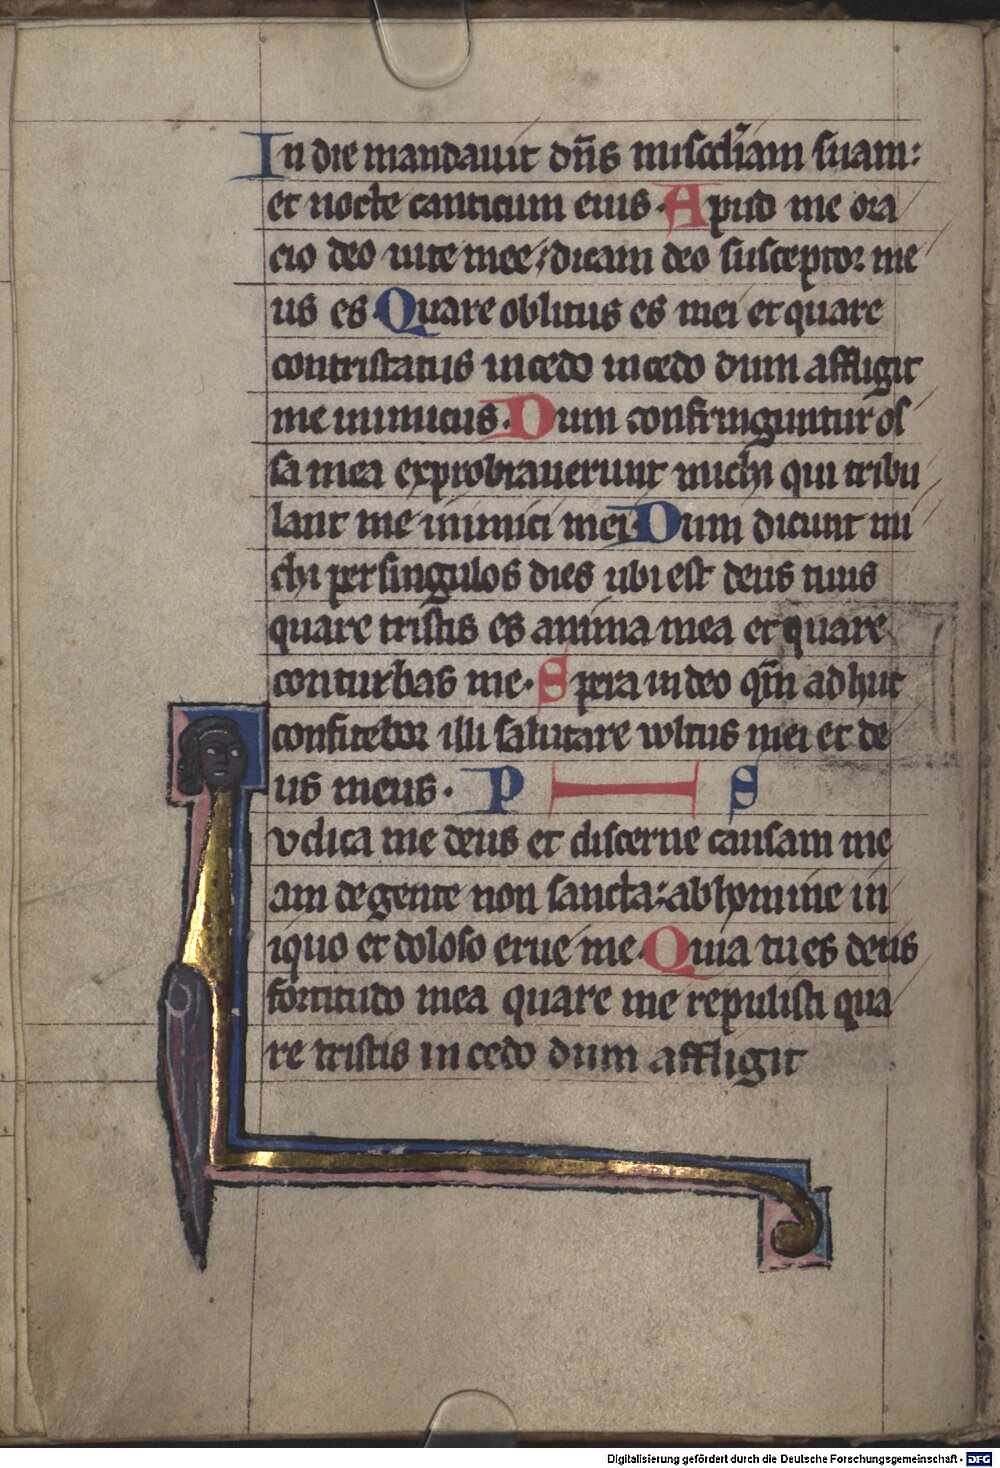 In die mandauit dñs misc̃diam suam:
et nocte canticum eius. Apud me ora
cio deo uite mee: dicam deo susceptor me
us es Quare oblitus es mei et quare
contristatus incedo incedo dum affligit
me inimicus. Dum confringuntur os
sa mea exprobrauerunt michi qui tribu
lant me inimici mei. Dum dicunt mi
chi per singulos dies ubi est deus tuus
quare tristis es anima mea et quare
conturbas me. Spera in deo qm̄ ad huc
confitebor illi salutare wltus mei et de
us meus. P S
vdica me deus et discerne causam me
am de gente non sancta: ab homine in
iquo et doloso erue me. Quia tu es deus
fortitudo mea quare me repulisti qua
re tristis incedo dum affligit
Digitalisierung gefördert durch die Deutsche Forschungsgemeinschaft - DFG